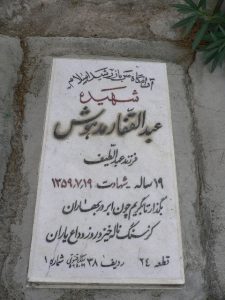 آرامگاه سرباز رشید اسلام
شهید
عبدالغفار مدهوش
فرزند عبداللطیف
۱۹ ساله شهادت: ۱۳۵۹،۷،۱۹
بگذار تا بگریم چون ابر در بهاران
کز سنگ ناله خیزد روز وداع یاران
قطعه ۲۴ ردیف ۳۸ شماره ۱